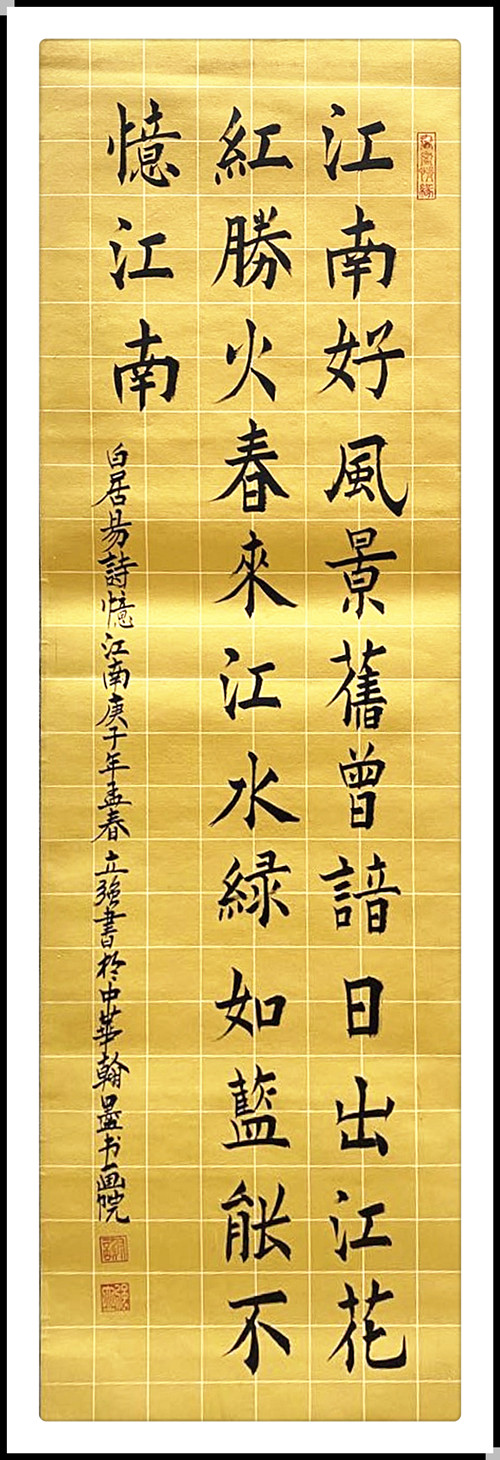 江南好風景舊曾諳日出江花
紅勝火春來江水緑如藍能不
憶江南
白居易詩憶江南庚子年孟春立強書於中華翰墨书画院